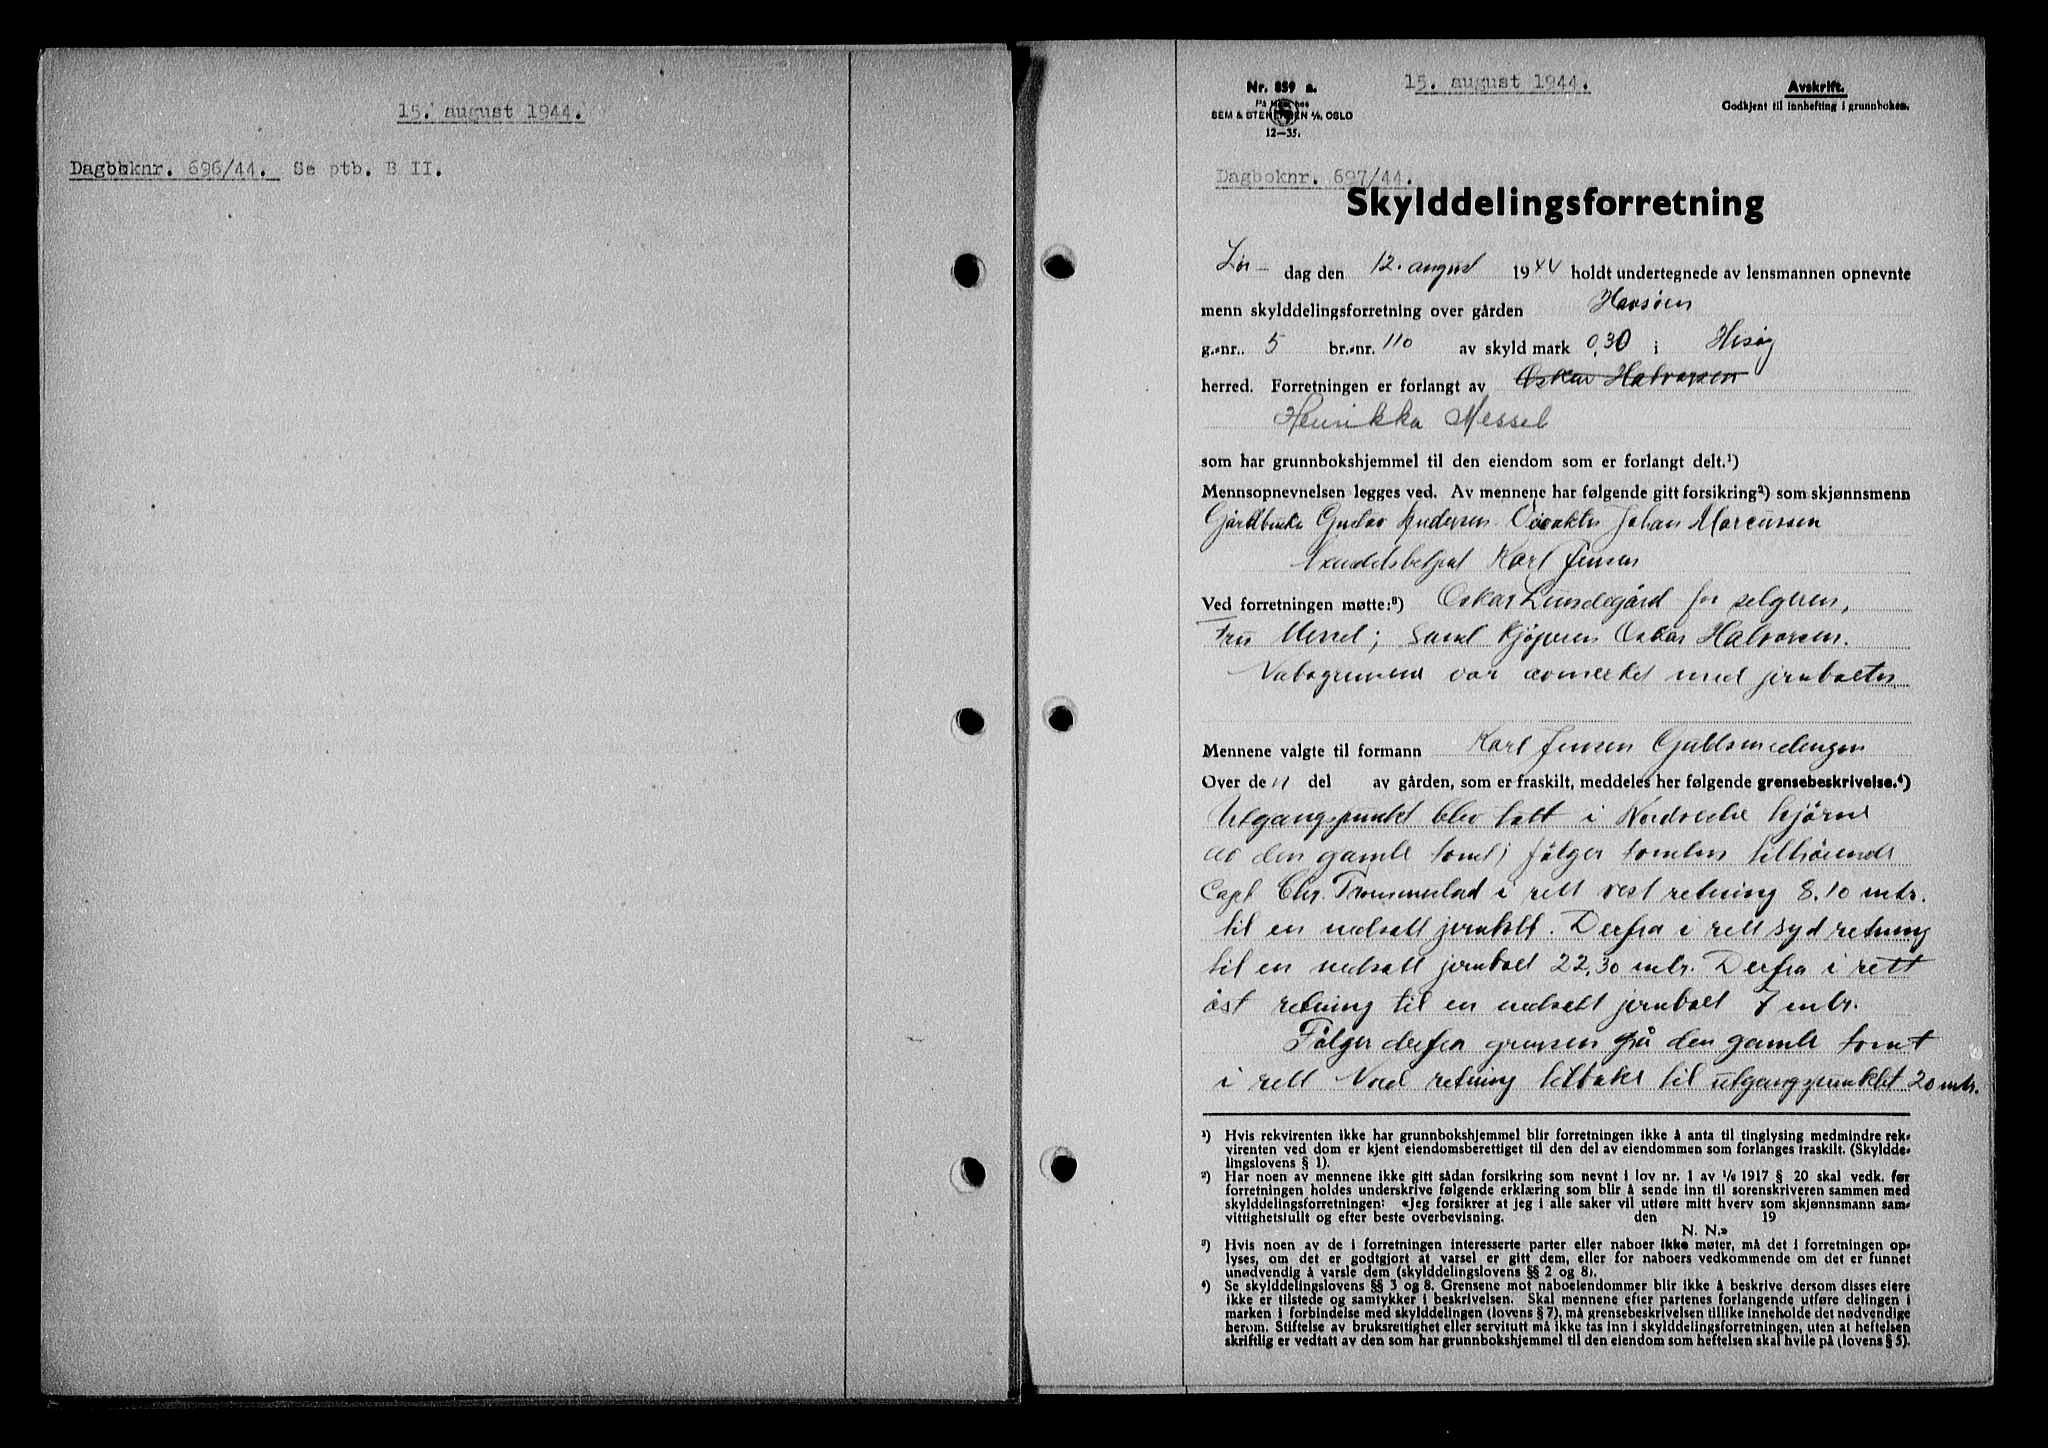 15. august 1944.
Dagboknr. 696/44. Se ptb. B II.
Nr. 859 a.
SEM & STENERSEN A/S, OSLO
12—35.
15. august 1944.
Avskrift.
Godkjent til innhefting i grunnboken.
Dagboknr. 697/44.
Skylddelingsforretning
Lør- dag den 12. august 1944 holdt undertegnede av lensmannen opnevnte
menn skylddelingsforretning over gården
g.-nr.. 5 br.-nr. 110 av skyld mark 0,30 i Hisøy
herred. Forretningen er forlangt av Oskar Halvorsen
Henrikka Messel
som har grunnbokshjemmel til den eiendom som er forlangt delt.¹)
Mennsopnevnelsen legges ved. Av mennene har følgende gitt forsikring²) som skjønnsmenn
Gustav Andersen. Johan Marcussen
Karl Jensen
Ved forretningen møtte:³) Oskar Lundegård for selgeren,
Fru Messel; samt kjøperen Oskar Halvorsen.
var avmerket med jernbolter
Mennene valgte til formann Karl Jensen Gullsmedengen
Over de 11 del av gården, som er fraskilt, meddeles her følgende grensebeskrivelse.⁴)
Utgangspunkt blev tatt i Nordvestre hjørne
av den gamle tomt; følger tomten tilhørende
Capt. Chr. Trommestad i rett vest retning 8.10 mtr.
til en nedsatt jernbolt. Derfra i rett syd retning
til en nedsatt jernbolt 22,30 mtr. Derfra i rett
øst retning til en nedsatt jernbolt 7 mtr.
Følger derfra grensen på den gamle tomt
i rett Nord retning tilbake til utgangspunktet 20 mtr.
¹) Hvis rekvirenten ikke har grunnbokshjemmel blir forretningen ikke å anta til tinglysing medmindre rek-
virenten ved dom er kjent eiendomsberettiget til den del av eiendommen som forlanges fraskilt. (Skyldde-
lingslovens § 1).
²) Har noen av mennene ikke gitt sådan forsikring som nevnt i lov nr. 1 av 1/6 1917 § 20 skal vedk. før
forretningen holdes underskrive følgende erklæring som blir å sende inn til sorenskriveren sammen med
skylddelingsforretningen: «Jeg forsikrer at jeg i alle saker vil utføre mitt hverv som skjønnsmann sam-
vittighetsfullt og efter beste overbevisning. den 19
N. N.»
³) Hvis noen av de i forretningen interesserte parter eller naboer ikke møter, må det i forretningen op-
lyses, om det er godtgjort at varsel er gitt dem, eller for naboers vedkommende om det er funnet
unødvendig å varsle dem (skylddelingslovens §§ 2 og 8).
⁴) Se skylddelingslovens §§ 3 og 8. Grensene mot naboeiendommer blir ikke å beskrive dersom disses eiere
ikke er tilstede og samtykker i beskrivelsen. Skal mennene efter partenes forlangende utføre delingen i
marken i forbindelse med skylddelingen (lovens § 7), må grensebeskrivelsen tillike inneholde det nødvendige
herom. Stiftelse av bruksrettighet eller servitutt må ikke tas inn i skylddelingsforretningen, uten at heftelsen
skriftlig er vedtatt av den som har grunnbokshjemmel til den eiendom som heftelsen skal hvile på (lovens § 5).